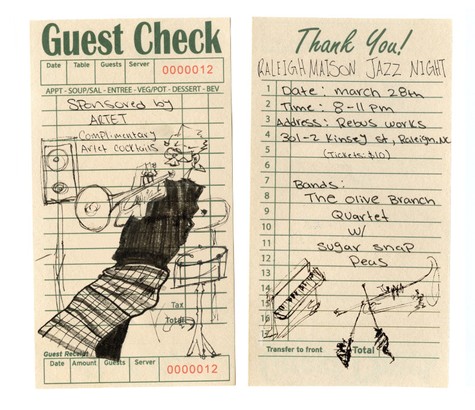 Guest Check
Date Table Guests Server 0000012
APPT - SOUP/SAL - ENTREE - VEG/POT - DESSERT - BEV
Sponsored by
ARTET
Complimentary
Artet cocktails
Tax
Total
Guest Receipt
Date Amount Guests Server 0000012
Thank You!
RALEIGH MAISON JAZZ NIGHT
1 Date: march 28th
2 Time: 8-11 pm
3 Address: Rebus works
4 301-2 Kinsey st, Raleigh, NC
5 (Tickets: $10)
6
7 Bands:
8 The Olive Branch
9 Quartet
10 W/
11 sugar snap
12 Peas
13
14
15
16
Transfer to front Total